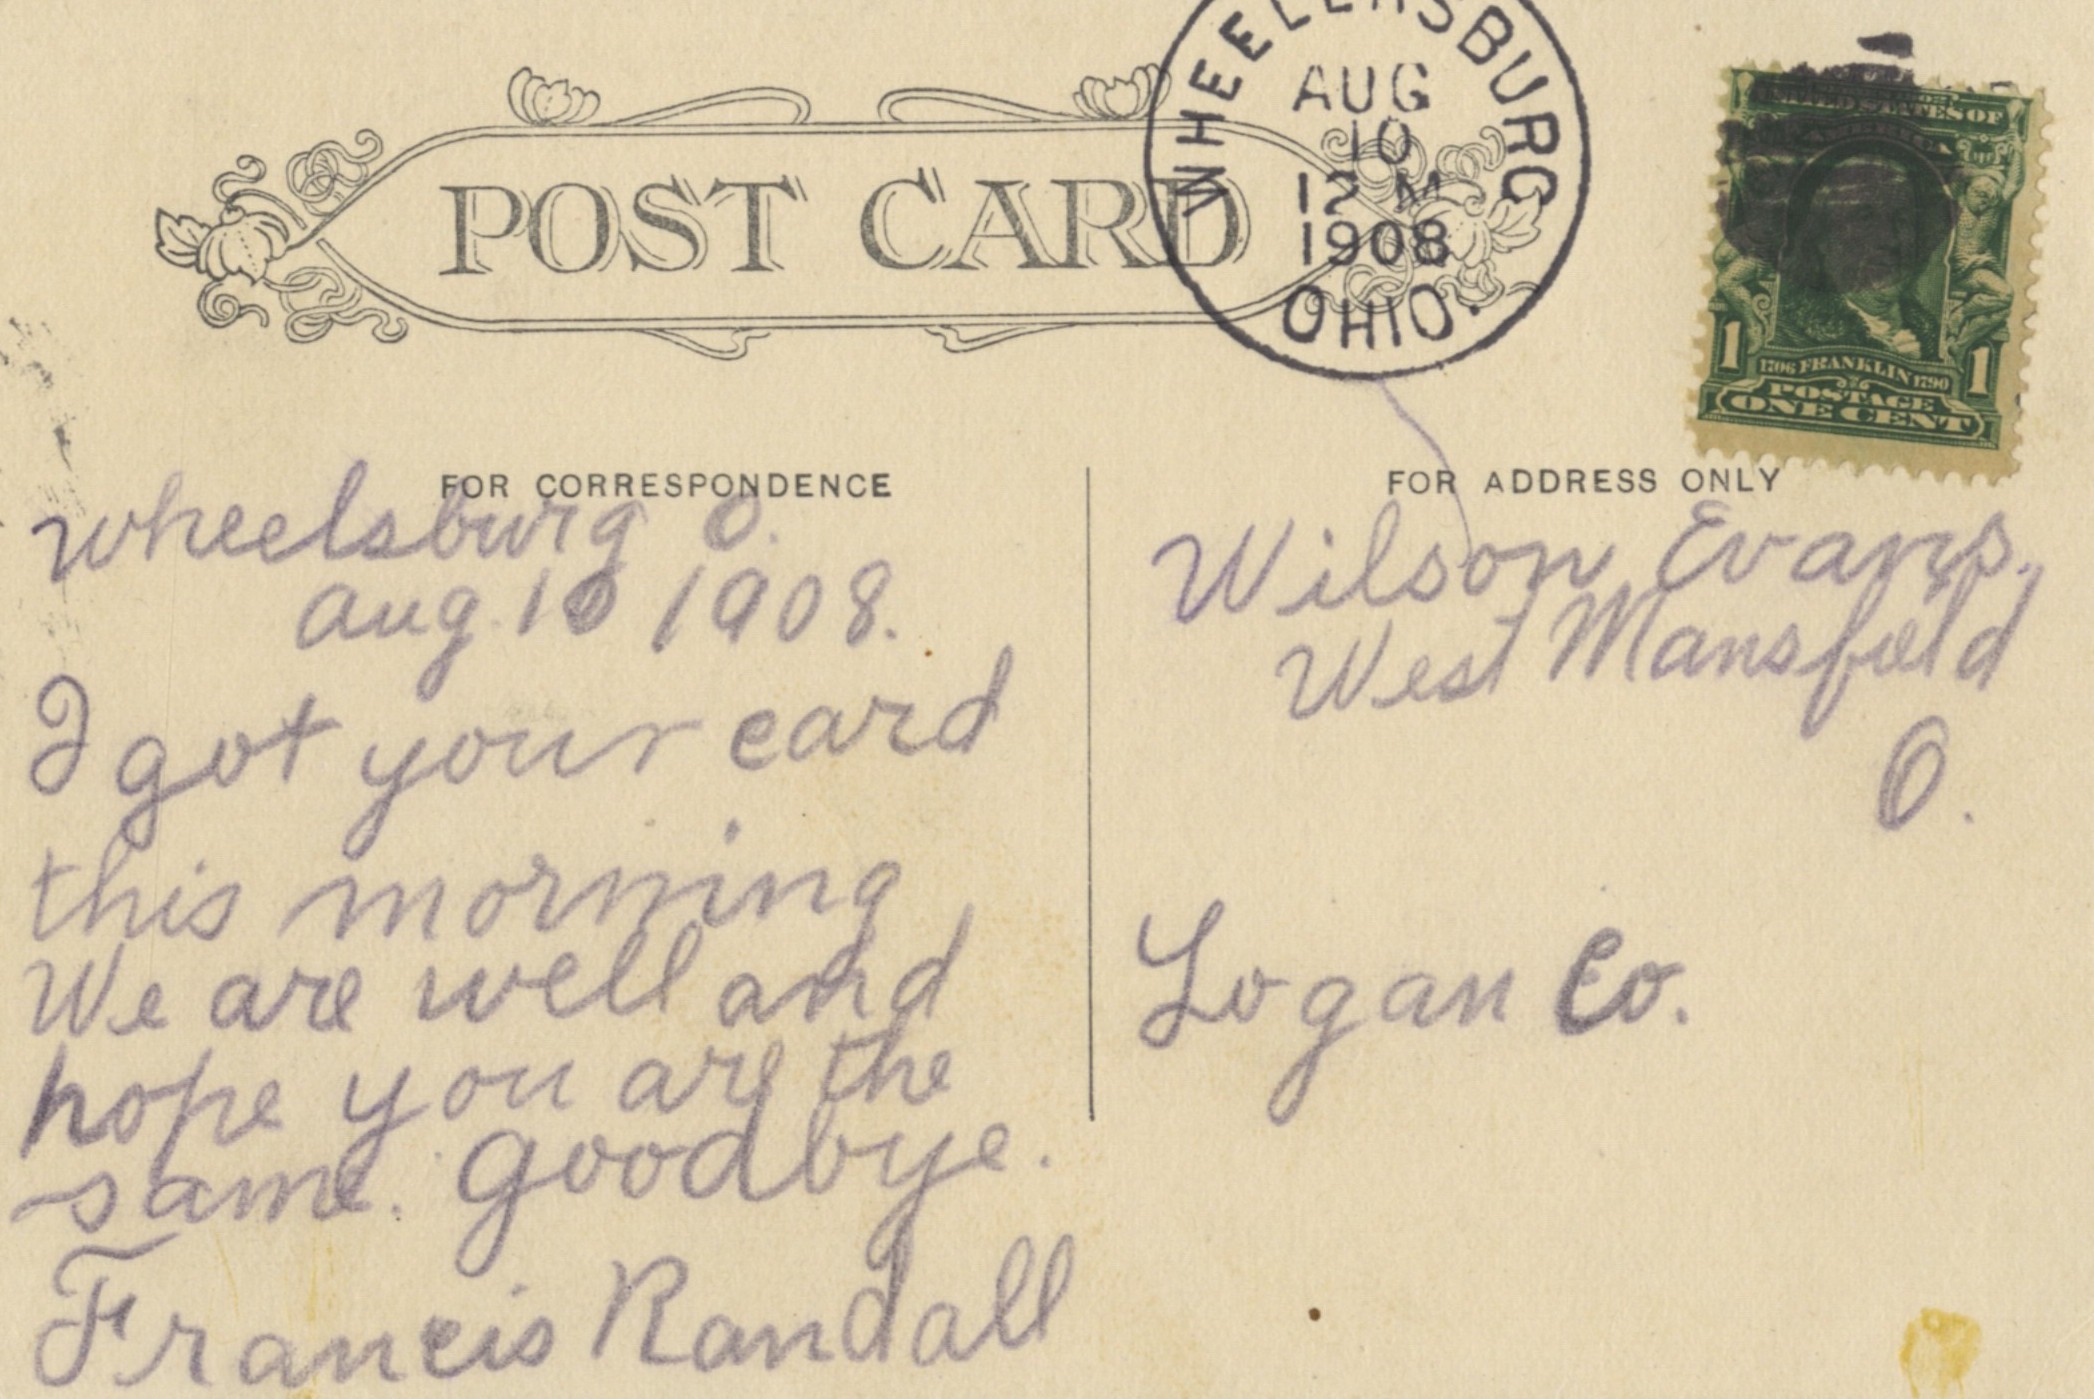 POST CARD
WHEELERSBURG
AUG
10
12 M
1908
OHIO.
UNITED STATES OF
AMERICA
1 1
1706 FRANKLIN 1790
POSTAGE
ONE CENT
FOR CORRESPONDENCE
Wheelsburg O.
Aug. 10 1908.
I got your card
this morning
We are well and
hope you are the
same. Goodbye.
Francis Randall
FOR ADDRESS ONLY
Wilson Evans.
West Mansfield
O.
Logan Co.